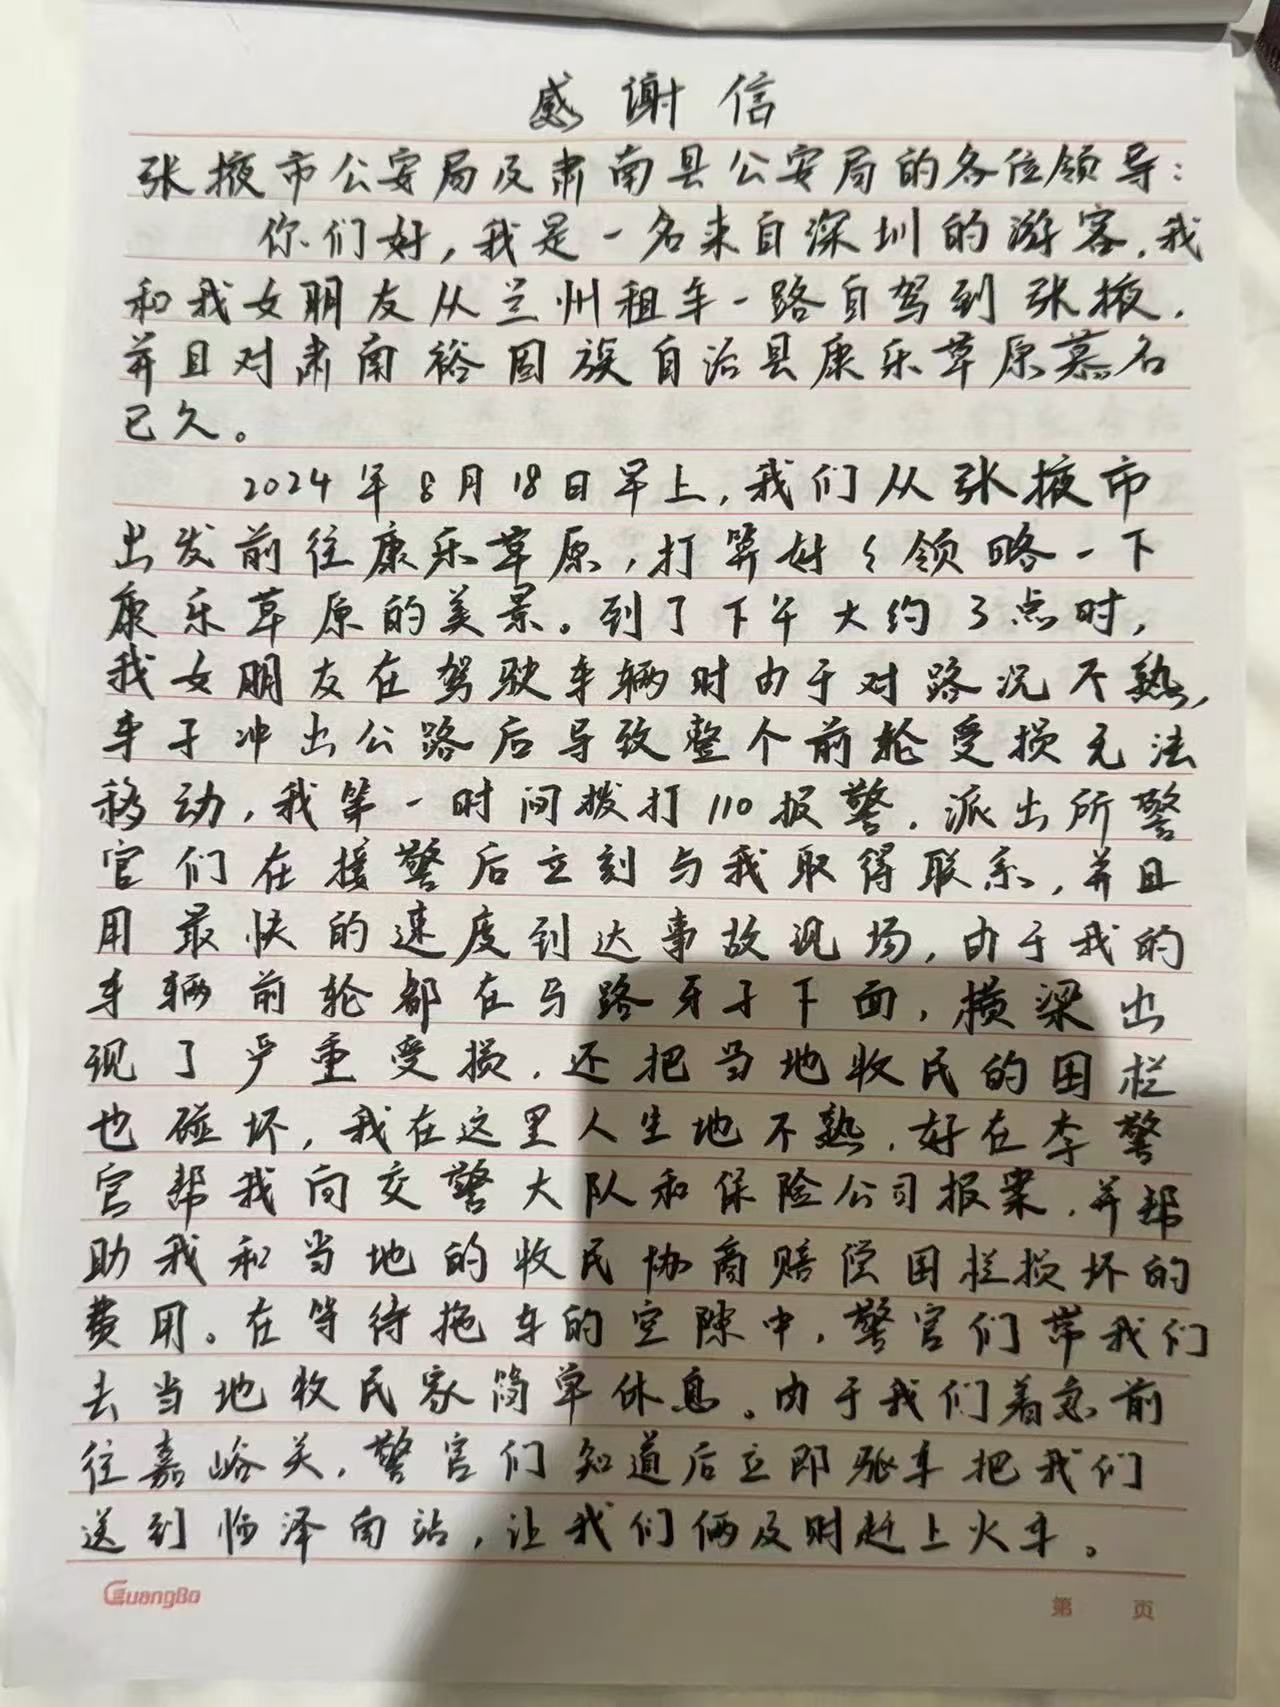 感谢信
张掖市公安局及肃南县公安局的各位领导：
你们好，我是一名来自深圳的游客，我
和我女朋友从兰州租车一路自驾到张掖，
并且对肃南裕固族自治县康乐草原慕名
已久。
2024年8月18日早上，我们从张掖市
出发前往康乐草原，打算好好领略一下
康乐草原的美景。到了下午大约3点时，
我女朋友在驾驶车辆时由于对路况不熟，
车子冲出公路后导致整个前轮受损无法
移动，我第一时间拨打110报警，派出所警
官们在接警后立刻与我取得联系，并且
用最快的速度到达事故现场，由于我的
车辆前轮都在马路牙子下面，横梁出
现了严重受损，还把当地牧民的围栏
也碰坏，我在这里人生地不熟，好在李警
官帮我向交警大队和保险公司报案，并帮
助我和当地的牧民协商赔偿围栏损坏的
费用。在等待拖车的空隙中，警官们带我们
去当地牧民家简单休息。由于我们着急前
往嘉峪关，警官们知道后立即驱车把我们
送到临泽南站，让我们俩及时赶上火车。
GuangBo
第 页